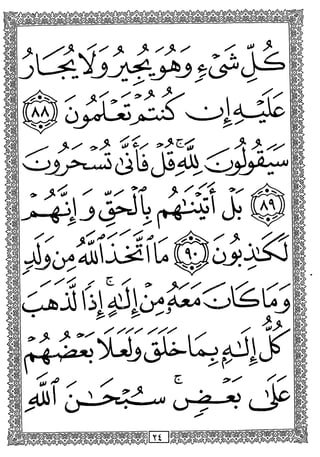 كُلِّ شَىْءٍ وَهُوَ يُجِيرُ وَلَا يُجَارُ
عَلَيْهِ إِن كُنتُمْ تَعْلَمُونَ ٨٨
سَيَقُولُونَ لِلَّهِ ۚ قُلْ فَأَنَّىٰ تُسْحَرُونَ
٨٩ بَلْ أَتَيْنَٰهُم بِالْحَقِّ وَإِنَّهُمْ
لَكَٰذِبُونَ ٩٠ مَا اتَّخَذَ اللَّهُ مِن وَلَدٍ
وَمَا كَانَ مَعَهُ مِنْ إِلَٰهٍ ۚ إِذًا لَّذَهَبَ
كُلُّ إِلَٰهٍ بِمَا خَلَقَ وَلَعَلَا بَعْضُهُمْ
عَلَىٰ بَعْضٍ ۚ سُبْحَٰنَ اللَّهِ
٢٤